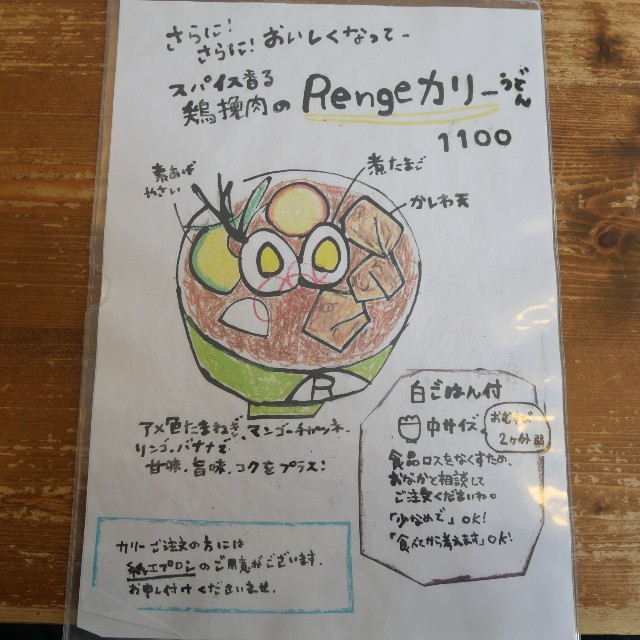 さらに!
さらに! おいしくなって〜
スパイス香る
鶏挽肉の Rengeカリーうどん
1100
素あげ
やさい
煮たまご
かしわ天
アメ色たまねぎ、マンゴーチャツネ
リンゴ、バナナで
甘味、旨味、コクをプラス!
白ごはん付
中サイズ
2ヶ分
食品ロスをなくすため、
おなかと相談して
ご注文くださいね。
「少なめで」OK!
OK!
カリーご注文の方には
紙エプロンのご用意がございます。
お申し付けくださいませ。